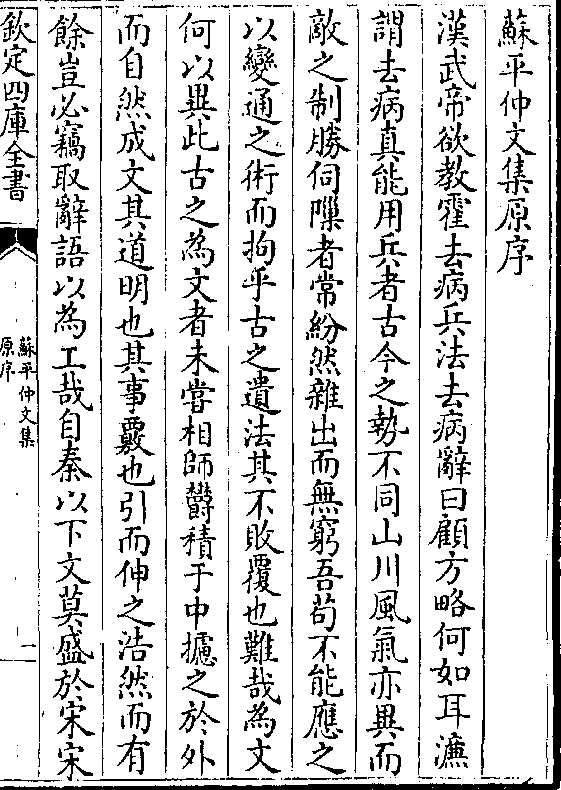 蘇平仲文集原序
漢武帝欲教霍去病兵法去病辭曰顧方略何如耳濂
謂去病真能用兵者古今之埶不同山川風氣亦異而
敵之制勝伺隟者常紛然雜出而無窮吾苟不能應之
以變通之術而拘乎古之遺法其不敗覆也難哉為文
何以異此古之為文者未嘗相師欝積于中攄之於外
而自然成文其道明也其事覈也引而伸之浩然而有
餘豈必竊取辭語以為工哉自秦以下文莫盛於宋宋
欽定四庫全書
蘇平仲文集
原序
一